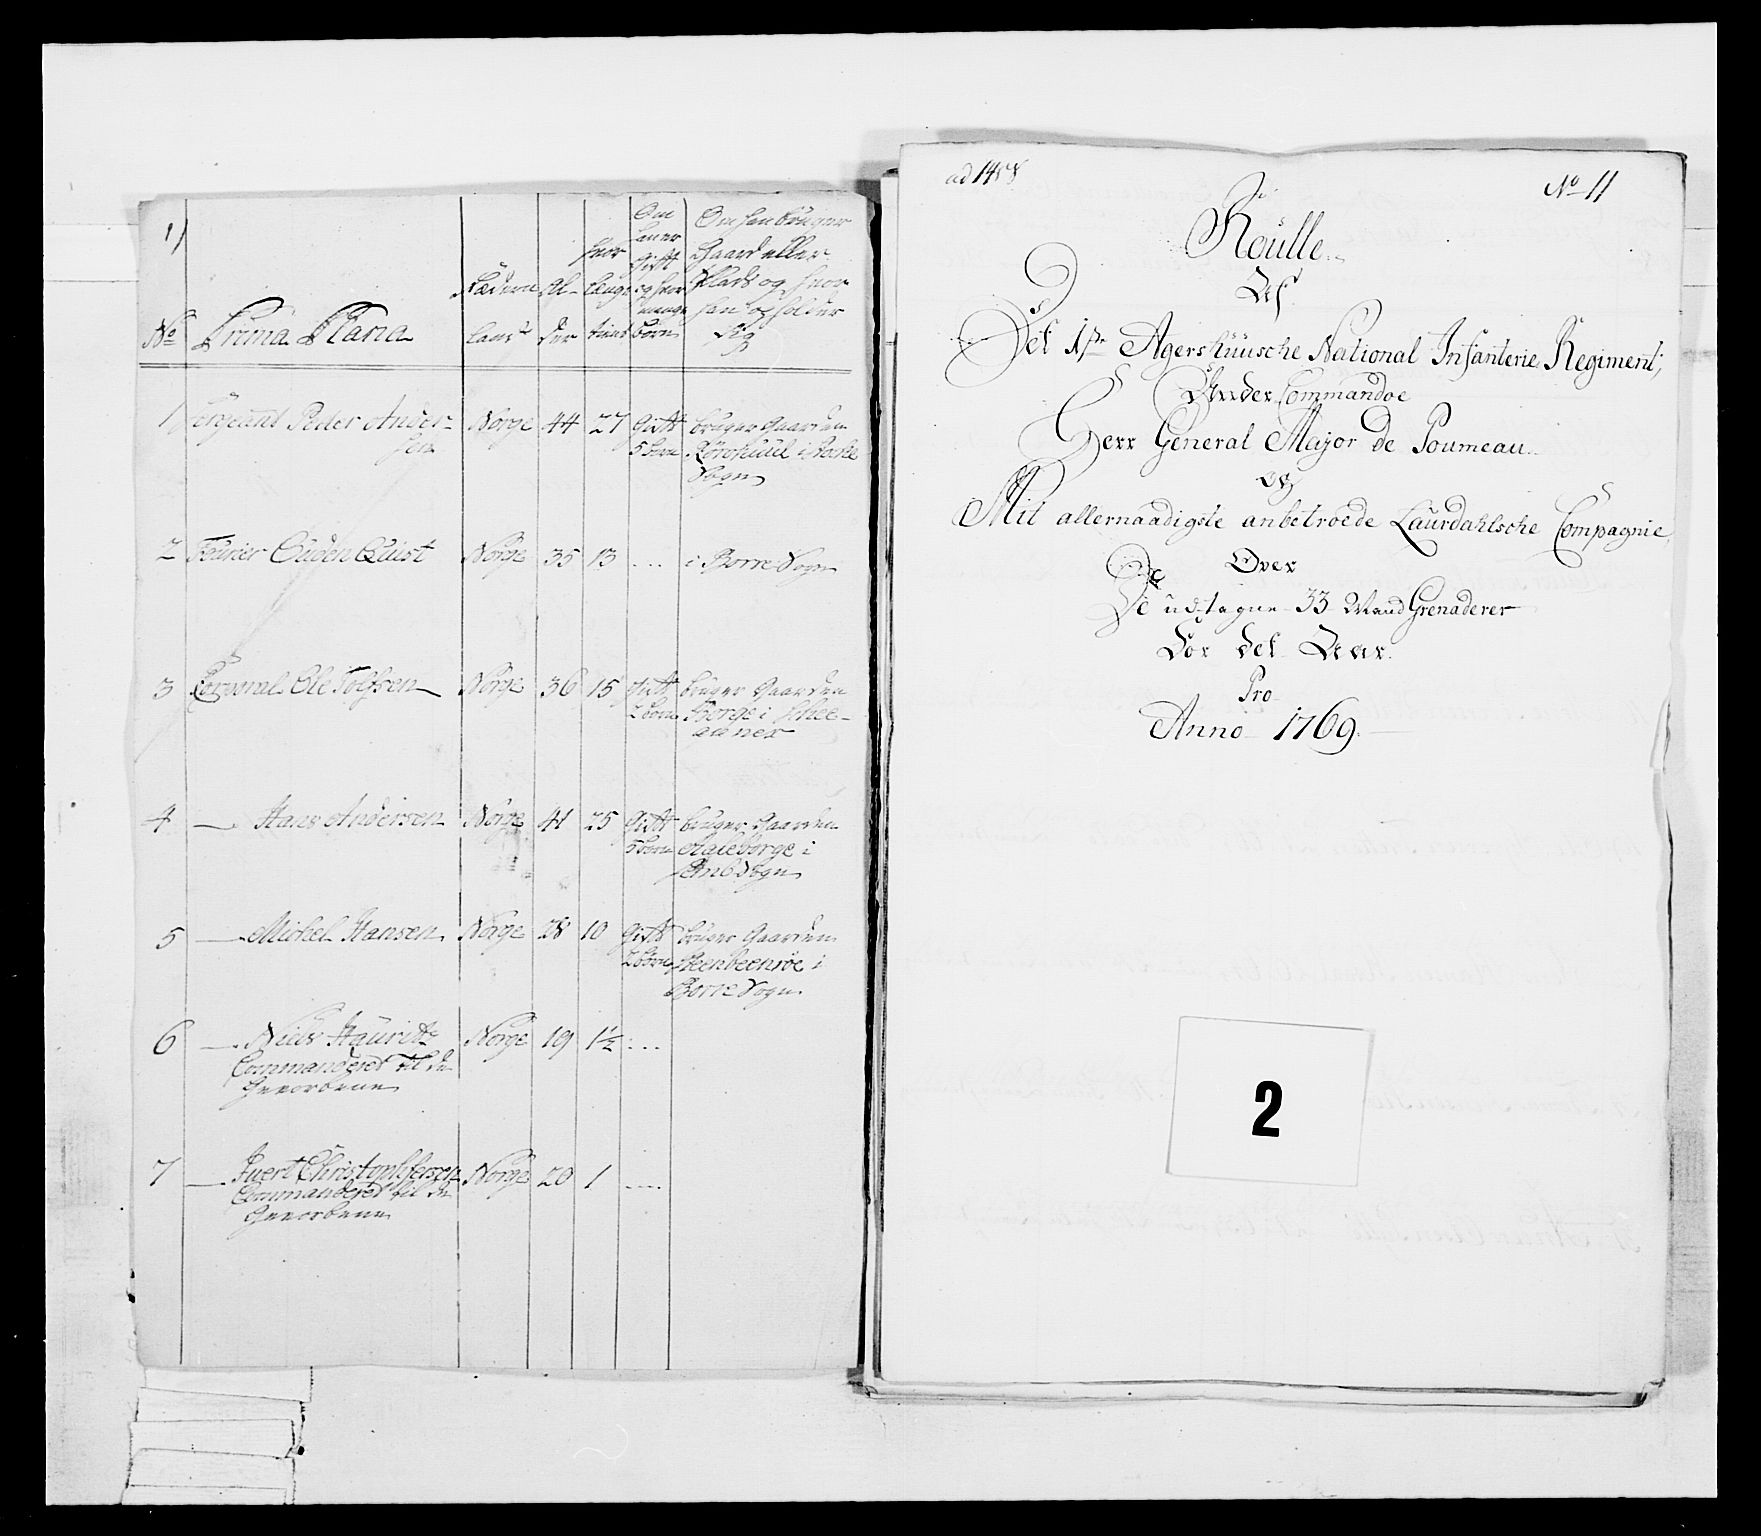 1)
No
Prima Plana
Fæderne
land
Al-
der
hvor
længe
tient
Om
han er
Gift
og hvor
mange
børn
Om han bruger
Gaard eller
Plads og hvor
han opholder
sig
1 Sergeant Peder Ander- Norge 44 27 Gift bruger Gaarden
sen 5 børn i
Sogn
2 Fourier Ouden Quist Norge 35 13 ... i Borre Sogn
3 Corporal Ole Tolfsen Norge 36 15 Gift bruger Gaarden
2 børn Borge i Schee-
4 — Hans Andersen Norge 41 25 Gift bruger Gaarden
5 børn i
Sogn
5 — Michel Hansen Norge 28 10 Gift bruger Gaarden
2 børn i
Borre Sogn
6 — Niels Hauritz Norge 19 1½ ...
Commanderet til de
Gevorbene
7 — Iuert Christophersen Norge 20 1 ....
Commanderet til de
Gevorbene
ad 1458
No 11
Roulle
Af
Det 1ste Agershuusche National Infanterie Regiment,
Under Commandoe
Herr General Major de Poumeau
og
Mit allernaadigste anbetroede Laurdahlsche Compagnie,
Over
De udtagne 33 Mand Grenaderer
For det Aar
Pro
Anno 1769.
2